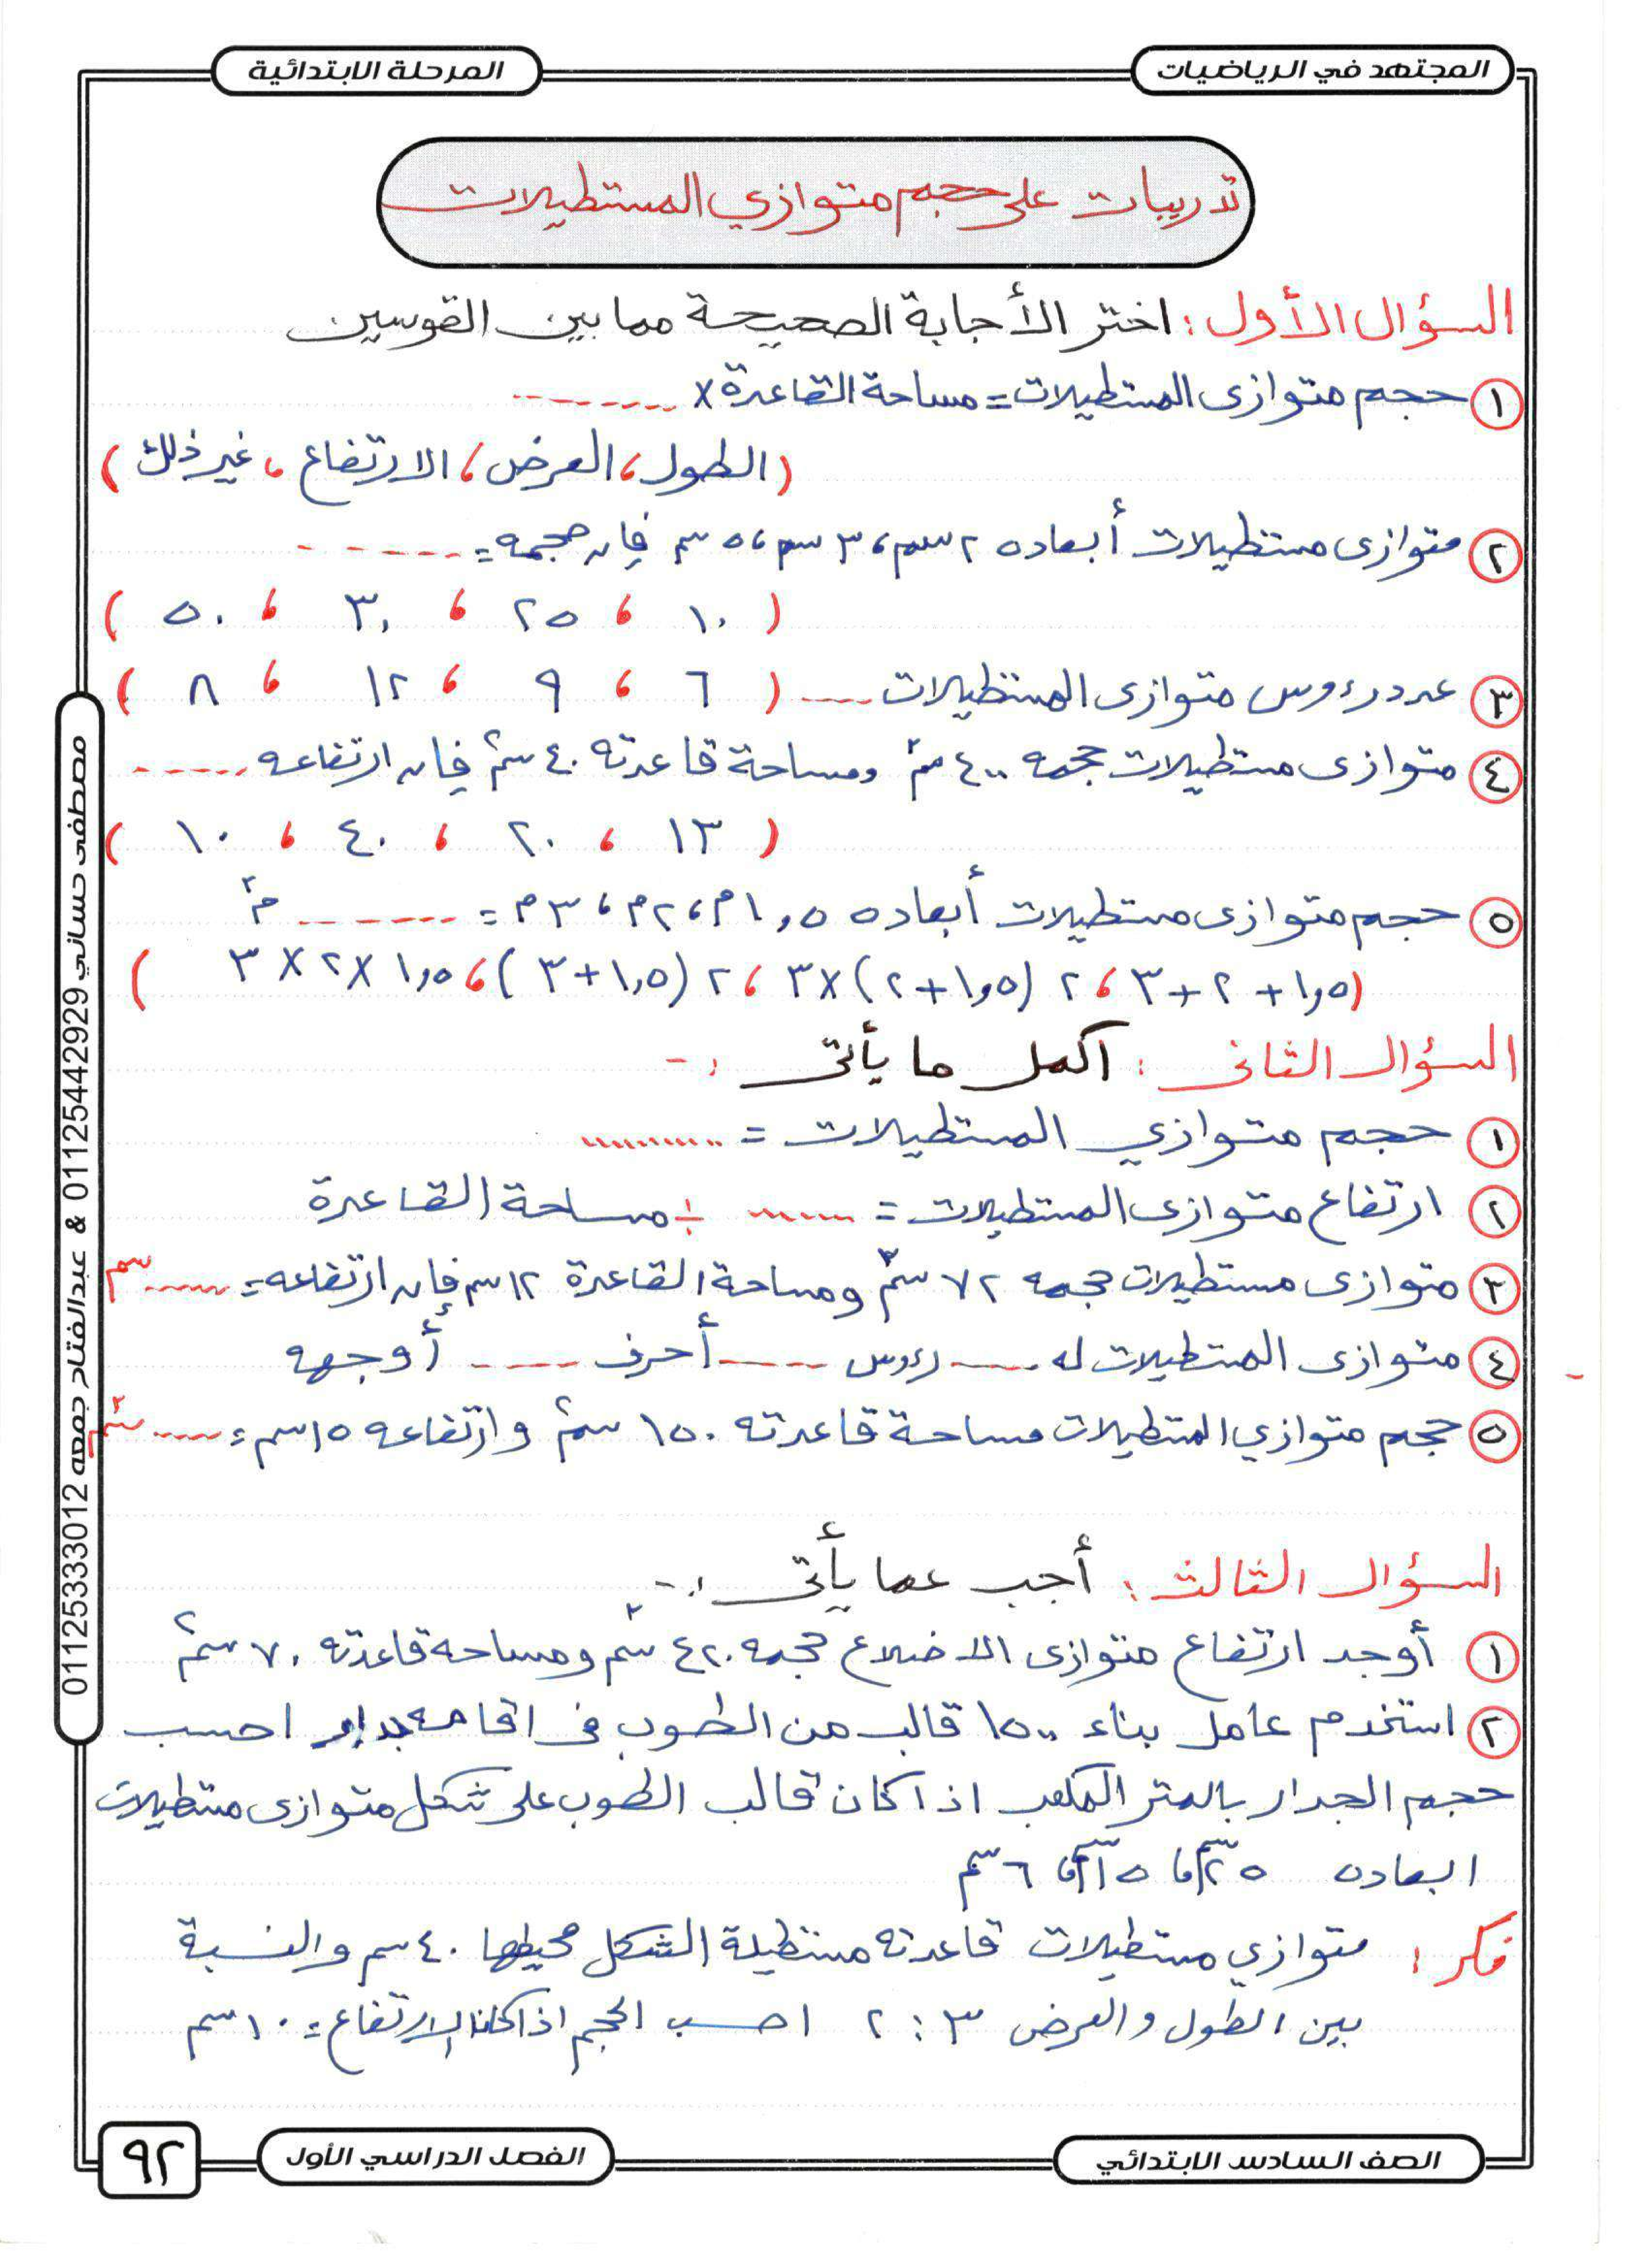 المجتهد في الرياضيات
المرحلة الابتدائية
تدريبات على حجم متوازي المستطيلات
السؤال الأول : اختر الأجابة الصحيحة مما بين القوسين
١ حجم متوازى المستطيلات = مساحة القاعدة × --------
( الطول ، العرض ، الارتفاع ، غير ذلك )
٢ متوازى مستطيلات أبعاده ٢ سم ، ٣ سم ، ٥ سم فإن حجمه = ------
( ١٠ ، ٢٥ ، ٣٠ ، ٥٠ )
٣ عدد رءوس متوازى المستطيلات ---- ( ٦ ، ٩ ، ١٢ ، ٨ )
٤ متوازى مستطيلات حجمه ٤٠٠ سم٣ ومساحة قاعدته ٤٠ سم٢ فإن ارتفاعه -----
( ١٣ ، ٢٠ ، ٤٠ ، ١٠ )
٥ حجم متوازى مستطيلات أبعاده ١,٥ م ، ٢ م ، ٣ م = ------ م٣
( ١,٥ + ٢ + ٣ ، ٢ (١,٥ + ٢) × ٣ ، ٢ (١,٥ + ٣) ، ١,٥ × ٢ × ٣ )
السؤال الثانى : اكمل ما يأتى :-
١ حجم متوازي المستطيلات = ..........
٢ ارتفاع متوازى المستطيلات = ...... ÷ مساحة القاعدة
٣ متوازى مستطيلات حجمه ٧٢ سم٣ ومساحة القاعدة ١٢ سم فإن ارتفاعه = ...... سم
٤ متوازى المستطيلات له ---- رءوس ----- أحرف ----- أوجهه
٥ حجم متوازي المستطيلات مساحة قاعدته ١٥٠ سم٢ وارتفاعه ١٥ سم = ...... سم٣
السؤال الثالث : أجب عما يأتى :-
١ أوجد ارتفاع متوازى الاضلاع حجمه ٤٢٠ سم٣ ومساحه قاعدته ٧٠ سم٢
٢ استخدم عامل بناء ١٥٠٠ قالب من الطوب فى اقامه جدار احسب
حجم الجدار بالمتر المكعب اذا كان قالب الطوب على شكل متوازى مستطيلات
ابعاده ٢٥ سم ، ١٥ سم ، ٦ سم
فكر : متوازي مستطيلات قاعدته مستطيلة الشكل محيطها ٤٠ سم والنسبة
بين الطول والعرض ٣ : ٢ احسب الحجم اذا كان الارتفاع = ١٠ سم
مصطفى حساني 01125442929 & عبدالفتاح جمعه 01125333012
الصف السادس الابتدائي
الفصل الدراسي الأول
٩٢